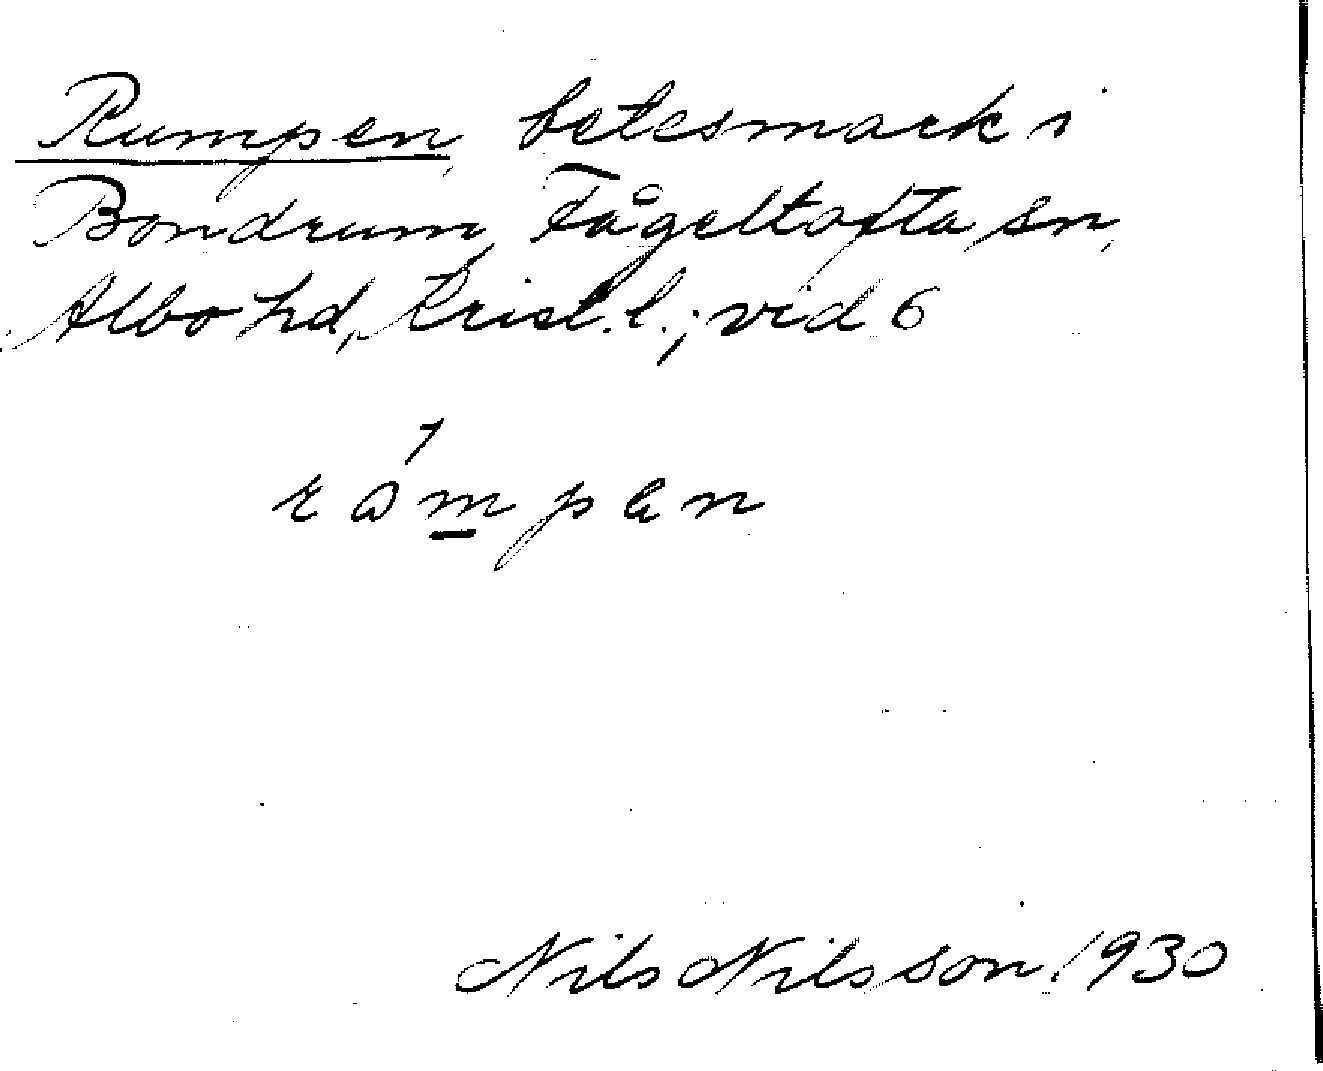 Rumpen, betesmark i
Bondrum, Fågeltofta sn,
Albo hd, Krist. l.; vid 6
råmpen
Nils Nilsson 1930